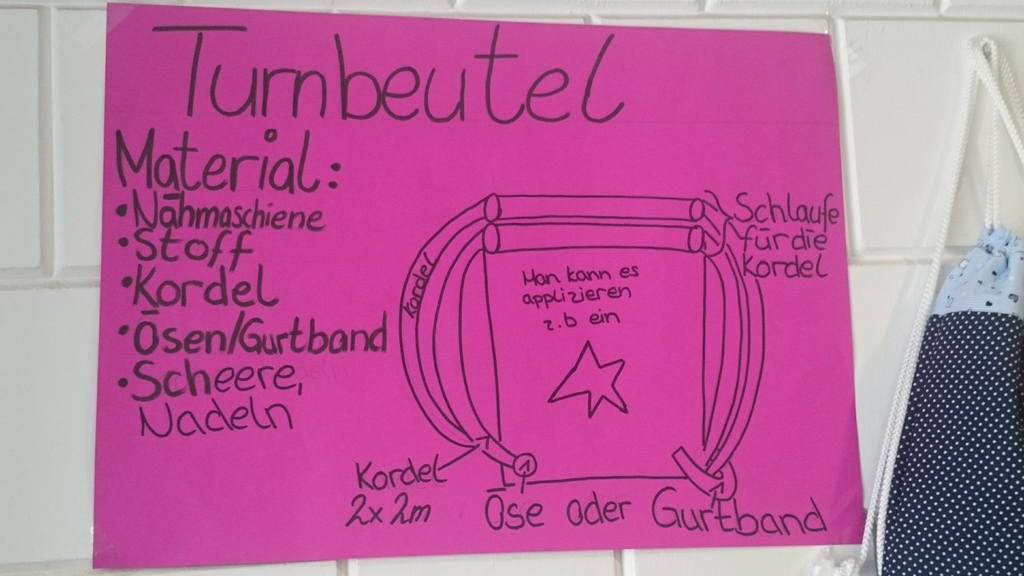 Turnbeutel
Material:
• Nähmaschiene
• Stoff
• Kordel
• Ösen/Gurtband
• Scheere,
Nadeln
Kordel
Man kann es
applizieren
z.b ein
Schlaufe
für die
Kordel
Kordel
2x 2m
Öse oder Gurtband